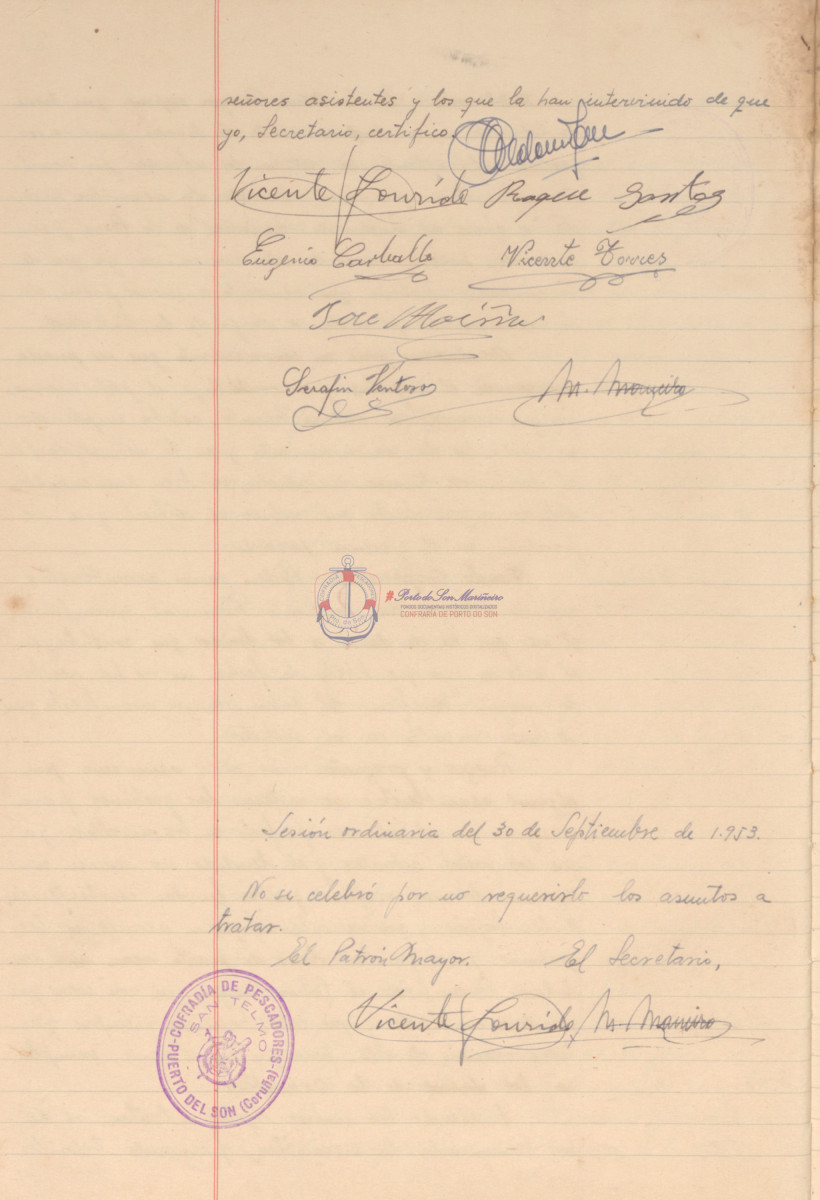 señores asistentes y los que la han intervenido de que
yo, Secretario, certifico.
Vicente Lourido Roque Santos
Eugenio Carballo Vicente Torres
Jose
Serafin Ventoso M. Maneiro
#Porto do Son Mariñeiro
FONDOS DOCUMENTAIS HISTÓRICOS DIXITALIZADOS
CONFRARÍA DE PORTO DO SON
Sesión ordinaria del 30 de Septiembre de 1.953.
No se celebró por no requerirlo los asuntos a
tratar.
El Patrón Mayor. El Secretario,
Vicente Lourido M. Maneiro
COFRADÍA DE PESCADORES
SAN TELMO
PUERTO DEL SON (Coruña)